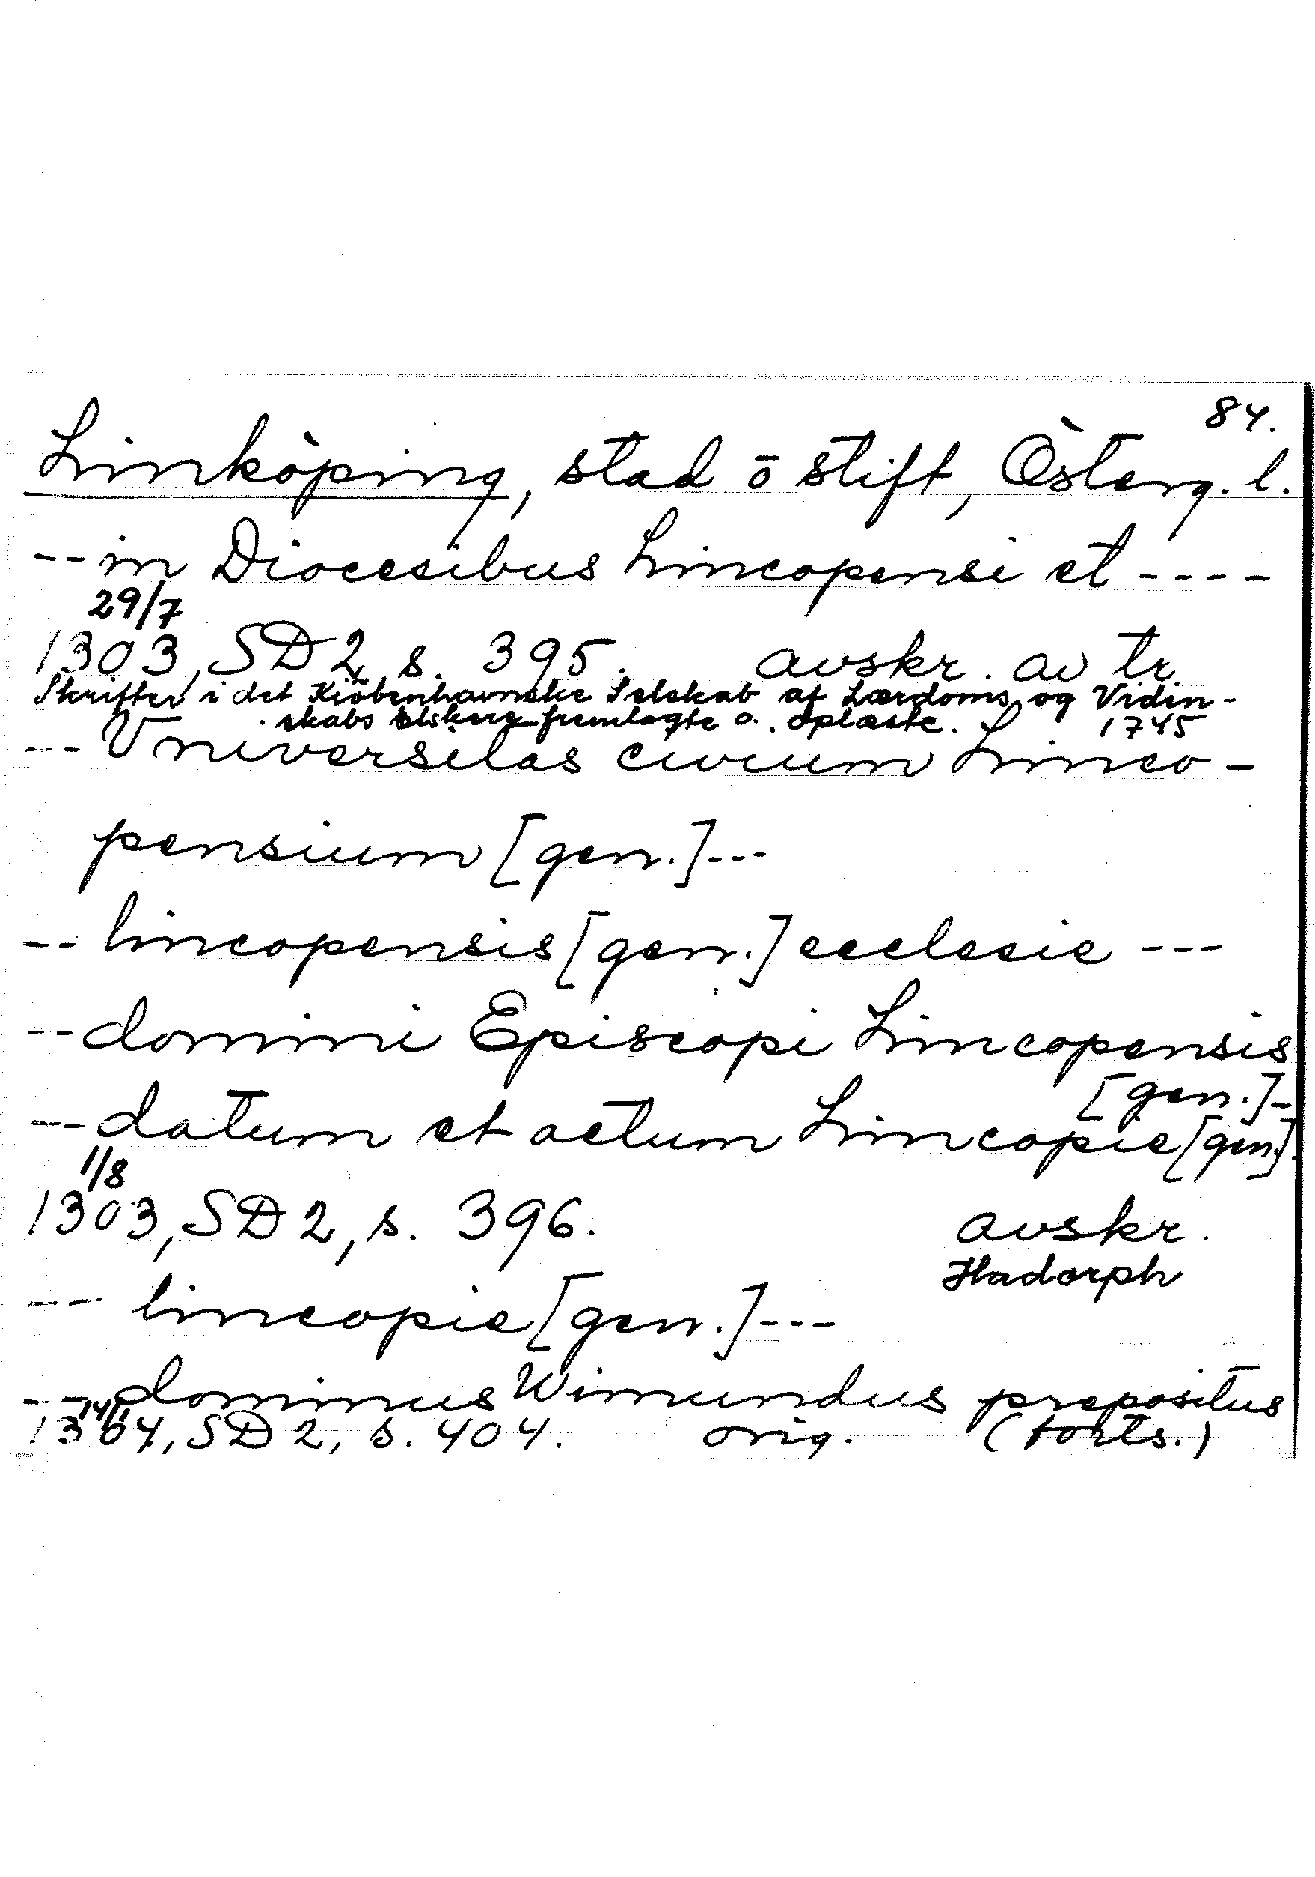 84.
Linköping, stad o stift, Österg. l.
-- in Diocesibus Lincopensi et ----
29/7
1303, SD 2, s. 395. avskr. av tr.
Skrifter i det Kiöbenhavnske Selskab af Lærdoms og Vidin-
skabs Elskere fremlagte o. oplæste. 1745
--- Vniversitas civium Linco-
pensium [gen.]---
-- lincopensis [gen.] ecclesie ---
-- domini Episcopi Lincopensis
[gen.]-
--- datum et actum Lincopie [gen].
1/8
1303, SD 2, s. 396. avskr.
Hadorph
--- lincopie [gen.]---
--- dominus Wimundus prepositus
1304, SD 2, s. 404. orig. (forts.)